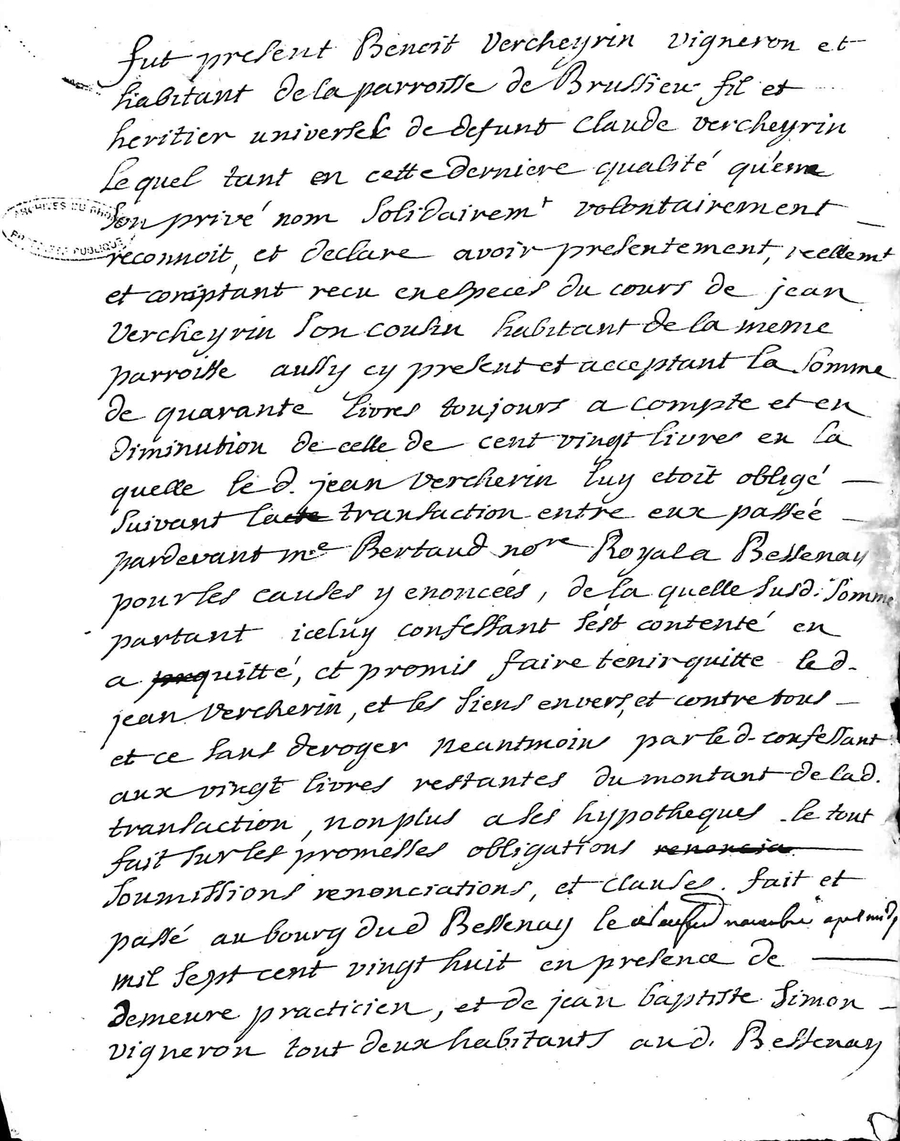 fut present Benoit Vercheyrin vigneron et
habitant de la parroisse de Brussieu fil et
heritier universel de defunt Claude vercheyrin
Lequel tant en cette derniere qualité qu'en
Son privé nom Solidairemt volontairement
ARCHIVES DU RHONE
PUBLIQUE
reconnoit, et declare avoir presentement, reellemt
et comptant recu en especes du cours de jean
Vercheyrin son cousin habitant de la meme
parroisse aussy cy present et acceptant la Somme
de quarante livres toujours a compte et en
diminution de celle de cent vingt livres en la
quelle le d. jean Vercherin luy etoit obligé
Suivant la transaction entre eux passéé
pardevant me Bertaud nore Royal a Bessenay
pour les causes y enoncéés, de la quelle susd. Somme
partant iceluy confessant s'est contenté en
a quitté, et promis faire tenir quitte le d.
jean Vercherin, et les siens envers, et contre tous
et ce sans deroger neantmoins par le d. confessant
aux vingt livres restantes du montant de la d.
transaction, non plus a ses hypotheques. le tout
fait sur les promesses obligations renoncia
Soumissions renonciations, et clauses. fait et
passé au bourg dud Bessenay le novembre apres midy
mil sept cent vingt huit en presence de
demeure practicien, et de jean baptiste Simon
vigneron tout deux habitants aud. Bessenay